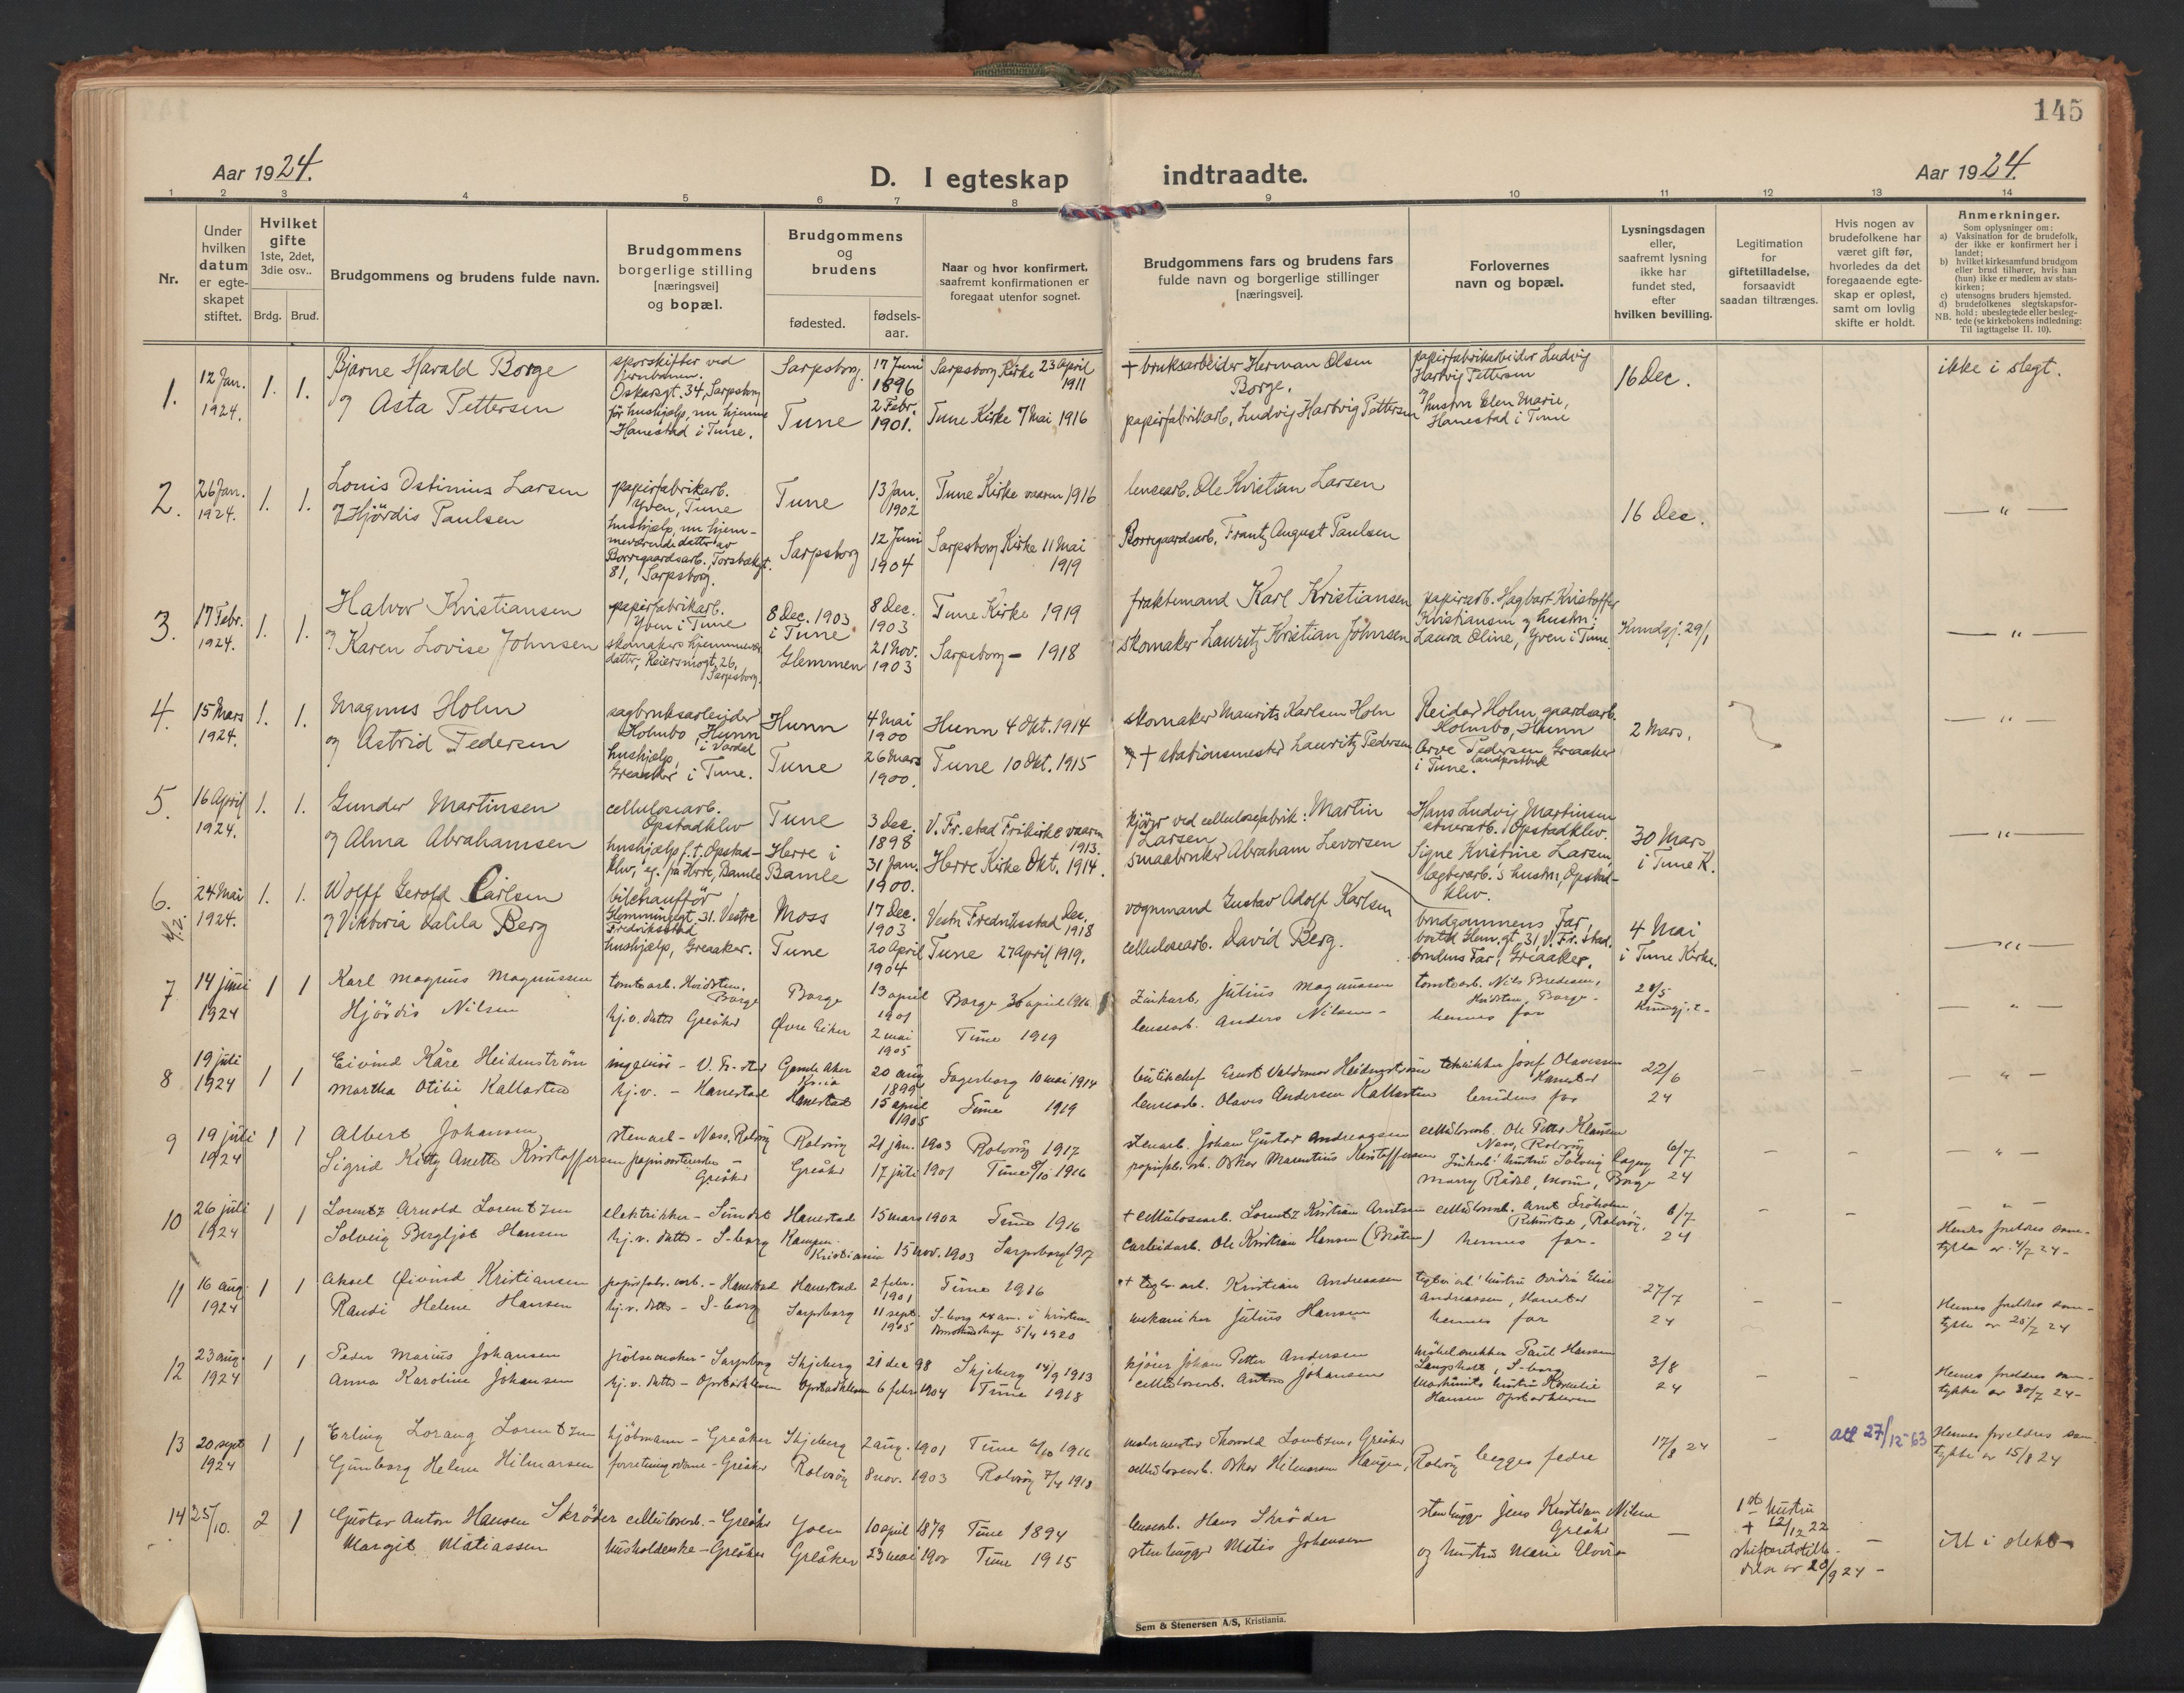 145
Aar 1924.
D. I egteskap indtraadte.
Aar 1924.
1 2 3 4 5 6 7 8 9 10 11 12 13 14
Nr.
Under hvilken datum er egteskapet stiftet.
Hvilket gifte 1ste, 2det, 3die osv..
Brdg. Brud.
Brudgommens og brudens fulde navn.
Brudgommens borgerlige stilling [næringsvei] og bopæl.
Brudgommens og brudens
fødested. fødselsaar.
Naar og hvor konfirmert, saafremt konfirmationen er foregaat utenfor sognet.
Brudgommens fars og brudens fars fulde navn og borgerlige stillinger [næringsvei].
Forlovernes navn og bopæl.
Lysningsdagen eller, saafremt lysning ikke har fundet sted, efter hvilken bevilling.
Legitimation for giftetilladelse, forsaavidt saadan tiltrænges.
Hvis nogen av brudefolkene har været gift før, hvorledes da det foregaaende egteskap er opløst, samt om lovlig skifte er holdt.
Anmerkninger.
Som oplysninger om:
a) Vaksination for de brudefolk, der ikke er konfirmert her i landet;
b) hvilket kirkesamfund brudgom eller brud tilhører, hvis han (hun) ikke er medlem av statskirken;
c) utensogns bruders hjemsted.
d) brudefolkenes slegtskapsforhold: ubeslegtede eller beslegtede (se kirkebokens indledning: Til iagttagelse II. 10).
NB.
1. 12 Jan. 1924. 1. 1.
Bjarne Harald Borge
og Asta Pettersen
sporskifter ved jernbanen. Oskarsgt. 34, Sarpsborg
før hushjælp, nu hjemme Hanestad i Tune.
Sarpsborg 17 Juni 1896 Sarpsborg Kirke 23 April 1911
Tune 2 Febr. 1901. Tune Kirke 7 Mai 1916
+ bruksarbeider Herman Olsen Borge.
papirfabrikarb. Ludvig Hartvig Pettersen
papirfabrikarbeider Ludvig Hartvig Pettersen
og hustru Elen Marie, Hanestad i Tune
16 Dec.
ikke i slegt.
2. 26 Jan. 1924. 1. 1.
Louis Ostinius Larsen
og Hjördis Paulsen
papirfabrikarb. Yven, Tune
hushjælp, nu hjemmeværende datter av Borregaardsarb., Torsbækgt. 81, Sarpsborg.
Tune 13 Jan. 1902 Tune Kirke vaaren 1916
Sarpsborg 12 Juni 1904 Sarpsborg Kirke 11 Mai 1919
lensearb. Ole Kristian Larsen
Borregaardsarb. Frantz August Paulsen
16 Dec.
— " —
3. 17 Febr. 1924. 1. 1.
Halvor Kristiansen
og Karen Lovise Johnsen
papirfabrikarb. Yven i Tune
skomakers hjemmevær. datter, Reiersensgt. 26, Sarpsborg.
8 Dec. 1903 i Tune 8 Dec. 1903 Tune Kirke 1919
Glemmen 21 Nov. 1903 Sarpsborg — 1918
fraktemand Karl Kristiansen
skomaker Lauritz Kristian Johnsen
papirarb. Hagbart Kristoffer Kristiansen og hustru
Laura Oline, Yven i Tune
Kundgj. 29/1
— " —
4. 15 Mars 1924. 1. 1.
Magnus Holm
og Astrid Pedersen
sagbruksarbeider Holmbo, Hunn i Vardal
hushjælp, Greaaker i Tune.
Hunn 4 Mai 1900 Hunn 4 Okt. 1914
Tune 26 Mars 1900. Tune 10 Okt. 1915
skomaker Maurits Karlsen Holm
+ stationsmester Lauritz Pedersen
Reidar Holm, gaardsarb. Holmbo, Hunn
Arve Pedersen, Greaaker i Tune. landpostbud
2 Mars.
— " —
5. 16 April 1924. 1. 1.
Gunder Martinsen
og Alma Abrahamsen
cellulosearb. Opstadklev
hushjælp f.t. Opstadklev, eg. fra Herre, Bamle
Tune 3 Dec. 1898 V. Fr.stad Frikirke vaaren 1913.
Herre i Bamle 31 Jan. 1900. Herre Kirke Okt. 1914.
kjører ved cellulosefabrik: Martin Larsen
smaabruker Abraham Levorsen
Hans Ludvig Martinsen Opstadklev.
Signe Kristine Larsen, hustru, Opstadklev.
30 Mars i Tune K.
— " —
6. 24 Mai 1924. 1. 1.
Wolff Gerold Carlsen
og Viktoria Dalila Berg
bilchaufför Glemmingegt. 31. Vestre Fredriksstad
hushjælp, Greaaker.
Moss 17 Dec. 1903 Vestre Fredriksstad Dec. 1918
Tune 20 April 1904 Tune 27 April 1919.
vognmand Gustav Adolf Karlsen
cellulosearb. David Berg.
brudgommens Far, bosatt Glem.gt. 31, V. Fr.stad.
brudens Far, Greaaker.
4 Mai i Tune Kirke.
— " —
7 14 juni 1924 1 1
Karl Magnus Magnussen
Hjördis Nilsen
tomtearb. Hvidsten, Borge
hj.v. datter Greåker
Borge 13 april 1901 Borge 30 april 1916
Øvre Eiker 2 mai 1905 Tune 1919
Zinkarb. Julius Magnussen
lensearb. Anders Nilsen —
tomtearb. Nils Bredesen, Hvidsten, Borge.
hennes far
28/5 Kundgj.t.
— " —
8 19 juli 1924 1 1
Eivind Kåre Heidenström
Martha Otilie Kallastad
ingeniör — V. Fr.stad
hj.v. — Hanestad
Gamle Aker Kr.ia 20 aug 1899 Fagerborg 10 mai 1914
Hanestad 15 april 1905 Tune 1919
butikchef Ernst Valdemar Heidenström
lensearb. Olaves Andersen Kallastad
tekniker Josef Olavesen Hanestad
brudens far
22/6 24
— — — " —
9 19 juli 1924 1 1
Albert Johansen
Sigrid Kitty Anette Kristoffersen
stenarb — Nes, Rolvsöy
papirsorterske — Greåker
Rolvsöy 21 jan. 1903 Rolvsöy 1917
Greåker 17 juli 1901 Tune 8/10 1916
stenarb. Johan Gustav Andreassen
papirfabr. arb. Oskar Marentius Kristoffersen
cellulosearb. Ole Petter Klausen Nes, Rolvsöy
hustru Solveig Ragny Marry Rådal, Moum, Borge
6/7 24
— — — " —
10 26 juli 1924 1 1
Lorentz Arnold Lorentzen
Solveig Bergljot Hansen
elektriker — Sundet
hj.v. datter — S-borg
Hanestad 15 mars 1902 Tune 1916
Kampen Kristiania 15 nov. 1903 Sarpsborg 1917
+ cellulosearb. Lorentz Kristian Arntsen
carbidarb. Ole Kristian Hansen (Bråten)
cellulosearb. Arnt Rolvsöy.
hennes far —
6/7 24
— — — " —
Hennes foreldres samtykke av 4/7 24 —
11 16 aug 1924 1 1
Aksel Øivind Kristiansen
Randi Helene Hansen
papirfabr. arb. — Hanestad
hj.v. datter — S-borg
Hanestad 2 febr. 1901 Tune 1916
Sarpsborg 11 sept 1905 S-borg exam. i kristendomskundskap 5/4 1920
+ teglv. arb. Kristian Andreassen
mekaniker Julius Hansen
teglv. arb.' hustru Ovidia Elise Andreassen, Hanestad
hennes far
27/7 24
— —
Hennes foreldres samtykke av 25/7 24
12 23 aug. 1924 1 1
Peder Marius Johansen
Anna Karoline Johansen
pölsemaker — Sarpsborg
hj.v. datter — Opstadkleven
Skjeberg 21 dec 98 Skjeberg 14/9 1913
Opstadkleven 6 febr 1904 Tune 1918
kjörer Johan Petter Andersen
cellulosearb. Anton Johansen
möbelsnekker Paul Hansen Langsholt, S-borg
Maskinists hustru Kornelie Hansen Opstadkleven
3/8 24
— —
Hennes foreldres samtykke av 30/7 24 —
13 20 sept 1924 1 1
Erling Lorang Lorentzen
Gunborg Helene Hilmarsen
kjöbmann — Greåker
forretningsdame — Greåker
Skjeberg 2 aug. 1901 Tune 6/10 1916
Rolvsöy 8 nov. 1903 Rolvsöy 7/4 1918
malermester Thorvald Lorentzen, Greåker
cellulosearb. Oskar Hilmarsen Haugen, Rolvsöy
begges fedre
17/8 24
—
att 27/12-63
Hennes foreldres samtykke av 15/8 24
14 25/10. 2 1
Gustav Anton Hansen Skröder
Margit Matiassen
cellulosearb. — Greåker
husholderske — Greåker
Yven 10 april 1879 Tune 1894
Greåker 23 mai 1900 Tune 1915
lensearb. Hans Skröder
stenhugger Matis Johansen
stenhugger Jens Kristian Nilsen Greåker
og hustru Marie Elvira
—
1ste hustru + 12/12 22
skifteattest av 20/9 24 —
—
ikke i slekt
Sem & Stenersen A/S, Kristiania.